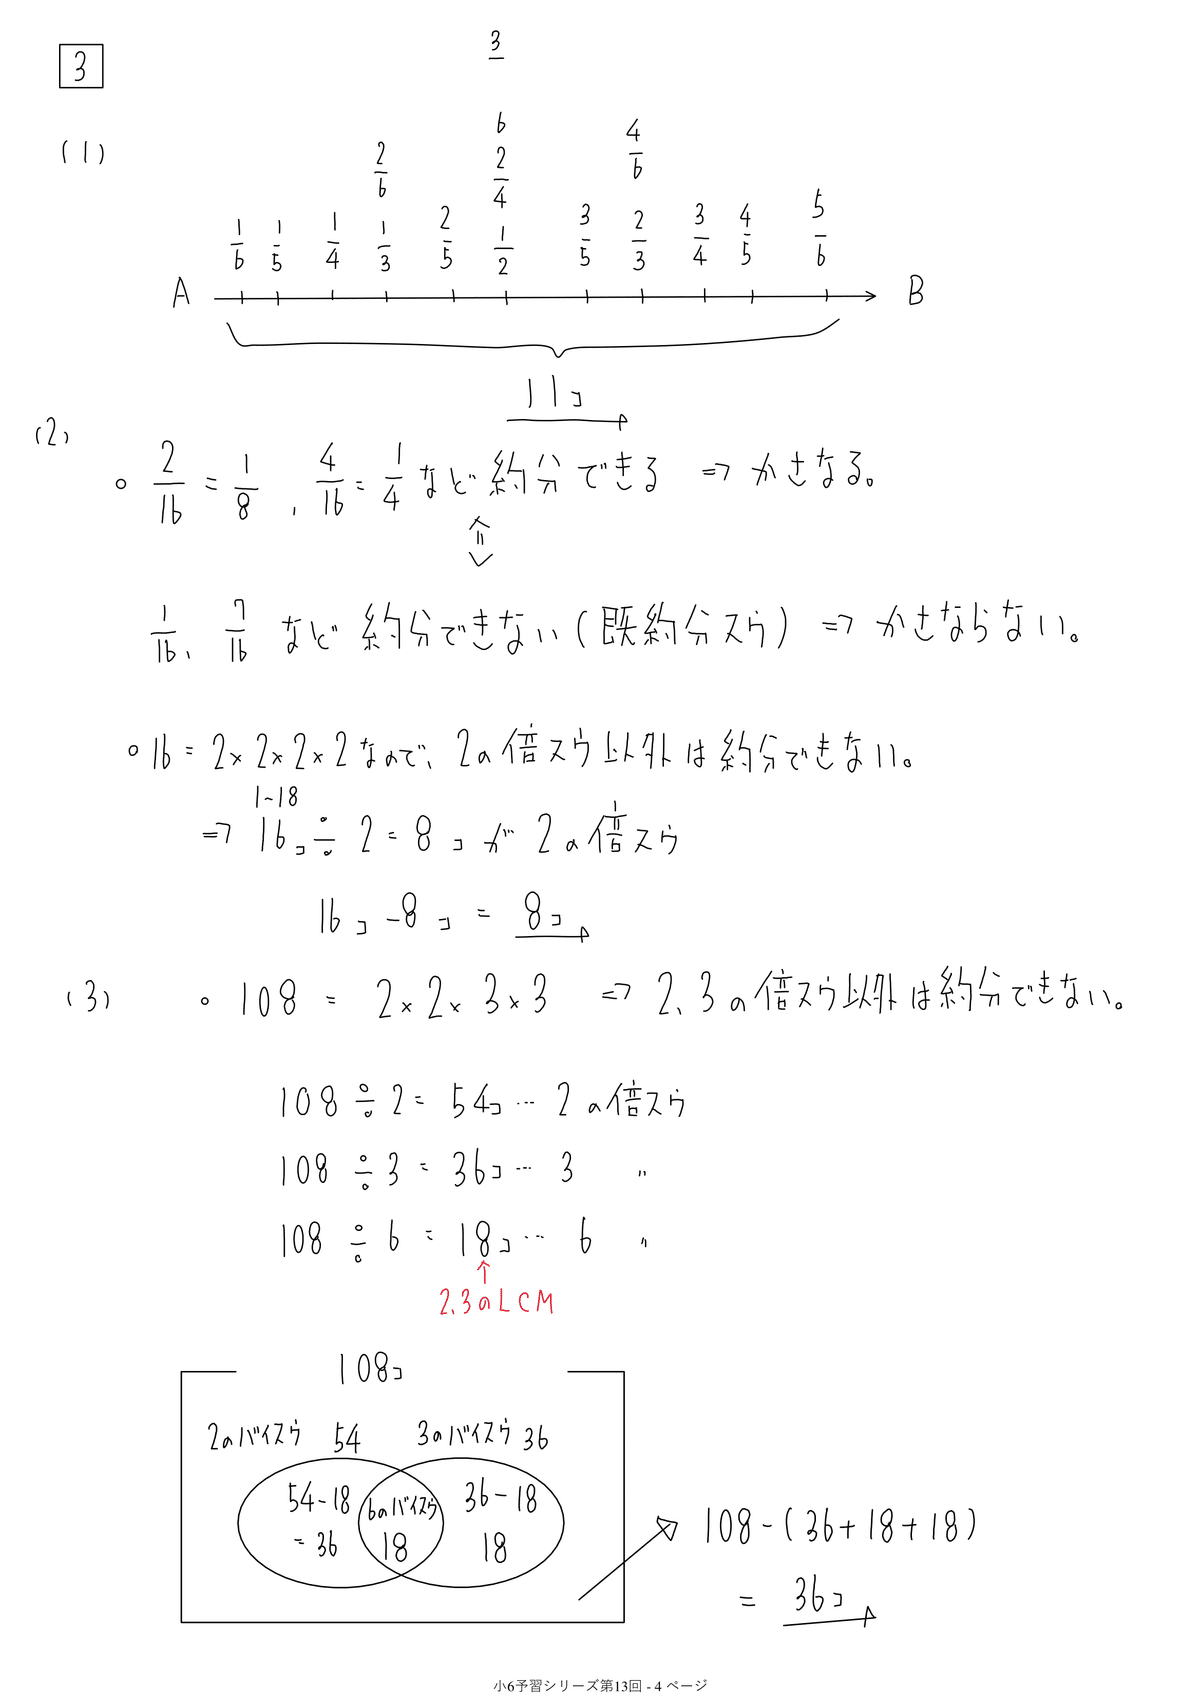 3
(1)
3/6
2/6 2/4 4/6
1/6 1/5 1/4 1/3 2/5 1/2 3/5 2/3 3/4 4/5 5/6
A B
11コ
(2)
○ 2/16 = 1/8 , 4/16 = 1/4 など約分できる ⇒ かさなる。
1/16、 7/16 など 約分できない(既約分スウ) ⇒ かさならない。
○ 16 = 2×2×2×2なので、2の倍スウ以外は約分できない。
1~18
⇒ 16コ÷2=8コが2の倍スウ
16コ-8コ = 8コ
(3) ○ 108 = 2×2×3×3 ⇒ 2、3の倍スウ以外は約分できない。
108÷2= 54コ… 2の倍スウ
108÷3 = 36コ… 3 〃
108÷6 = 18コ… 6 〃
↑
2、3のLCM
108コ
2のバイスウ 54 3のバイスウ 36
54-18 6のバイスウ 36-18
= 36 18 18
108-(36+18+18)
= 36コ
小6予習シリーズ第13回 - 4 ページ